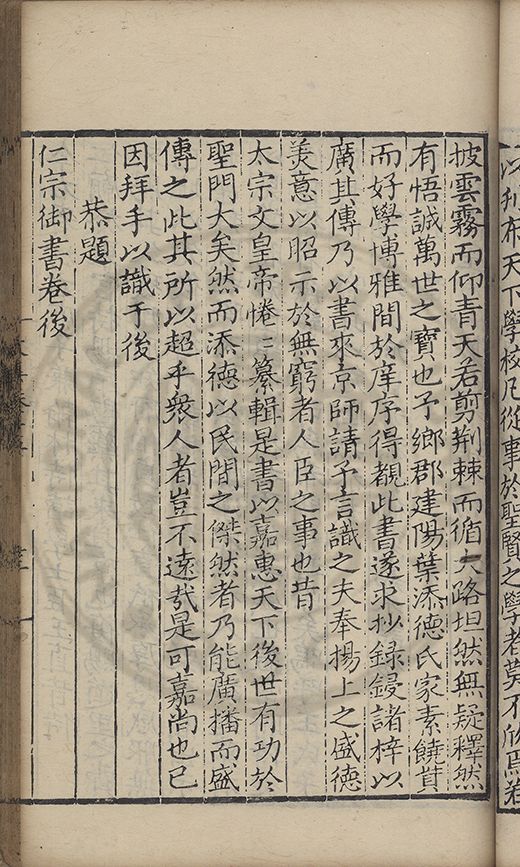 以刋布天下學校乃從事於聖賢之學者莫不欣焉若
披雲霧而仰青天若剪荆棘而循大路坦然無疑釋然
有悟誠萬世之寶也予鄉郡建陽葉添德氏家素饒貲
而好學博雅間於庠序得覩此書遂求抄録鋟諸梓以
廣其傳乃以書來京師請予言識之夫奉揚上之盛德
美意以昭示於無窮者人臣之事也昔
太宗文皇帝惓〻纂輯是書以嘉惠天下後世有功於
聖門大矣然而添德以民間之傑然者乃能廣播而盛
傳之此其所以超乎衆人者豈不遠㢤是可嘉尚也已
因拜手以識于後
恭題
仁宗御書卷後